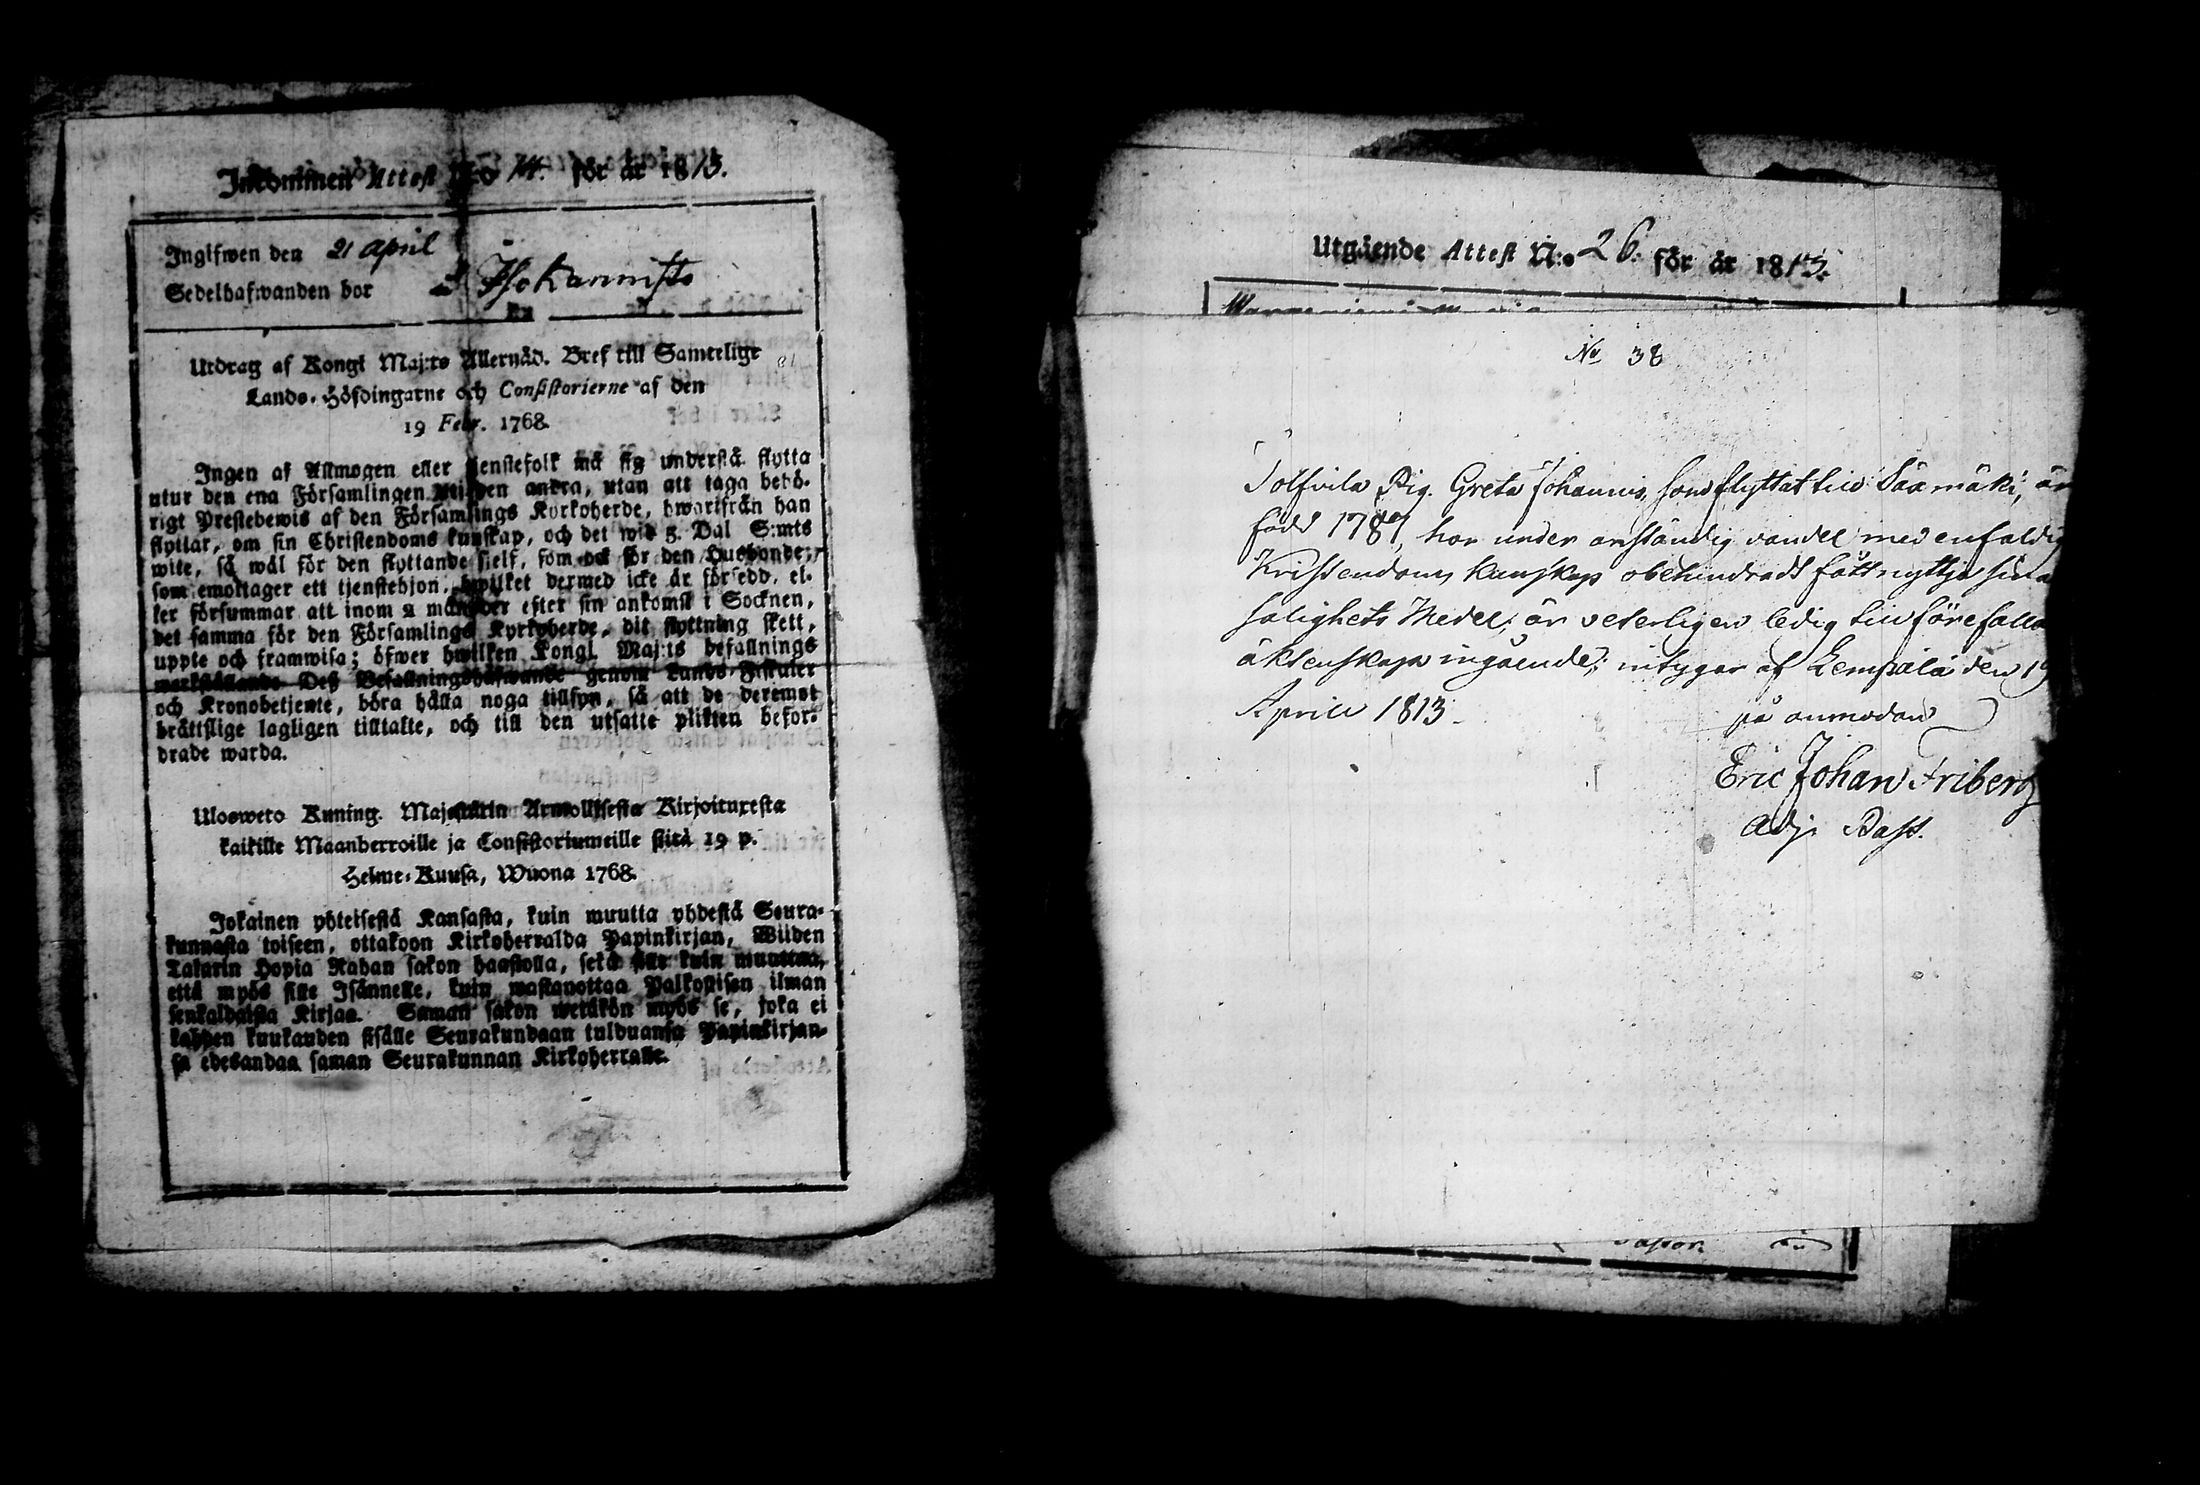 Inkommen Attest N:o 14. för år 1813.
Ingifwen den 21 April
Sedelhafwanden bor i Isokarmisto
Utdrag af Kongl Maj:ts Allernåd. Bref till Samtelige
Lands-Höfdingarne och Consistorierne af den
19 Febr. 1768.
Ingen af Allmogen eller tjenstefolk må sig understå flytta
utur den ena Församlingen uti den andra, utan att taga behö-
rigt Prestebewis af den Församlings Kyrkoherde, hwarifrån han
flyttar, om sin Christendoms kunskap, och det wid 5. Dal S:mts
wite, så wäl för den flyttande sjelf, som ock för den Husbonde,
som emottager ett tjenstehjon, hwilket dermed icke är försedd, el-
ler försummar att inom 2 månader efter sin ankomst i Socknen,
det samma för den Församlings Kyrkoherde, dit flyttning skett,
uppte och framwisa; öfwer hwilken Kongl. Maj:ts befallnings
werkställande Deß Befallningshafwande genom Lands-Fiskaler
och Kronobetjente, böra hålla noga tillsyn, så att de deremot
bråttslige lagligen tilltalte, och till den utsatte plikten befor-
drade warda.
Ulosweto Kuning. Majestätin Armollisesta Kirjoituxesta
kaikille Maanherroille ja Consistoriumeille siitä 19 p.
Helme-Kuusa, Wuona 1768.
Jokainen yhteisestä Kansasta, kuin muutta yhdestä Seura-
kunnasta toiseen, ottakoon Kirkoherralda Papinkirjan, Wiiden
Talarin Hopia Rahan sakon haastolla, sekä sille kuin muuttaa,
että myös sille Isännelle, kuin wastanottaa Palkollisen ilman
senkaldaista Kirjaa. Saman sakon wetäkön myös se, joka ei
kahden kuukauden sisälle Seurakundaan tulduansa Papinkirjan-
sa edesandaa saman Seurakunnan Kirkoherralle.
Utgående Attest N:o 26. för år 1813.
No 38
Tolfvila Pig. Greta Johannis, som flyttat till Sääxmäki, är
född 1787, har under anständig vandel med enfaldig
Kristendoms kunskap obehindradt fått nyttja sina
salighets Medel; är veterligen ledig till förefalla
äktenskaps ingående; intygar af Lempälä den 19
April 1813.
på anmodan
Eric Johan Friberg
Adj. Past.